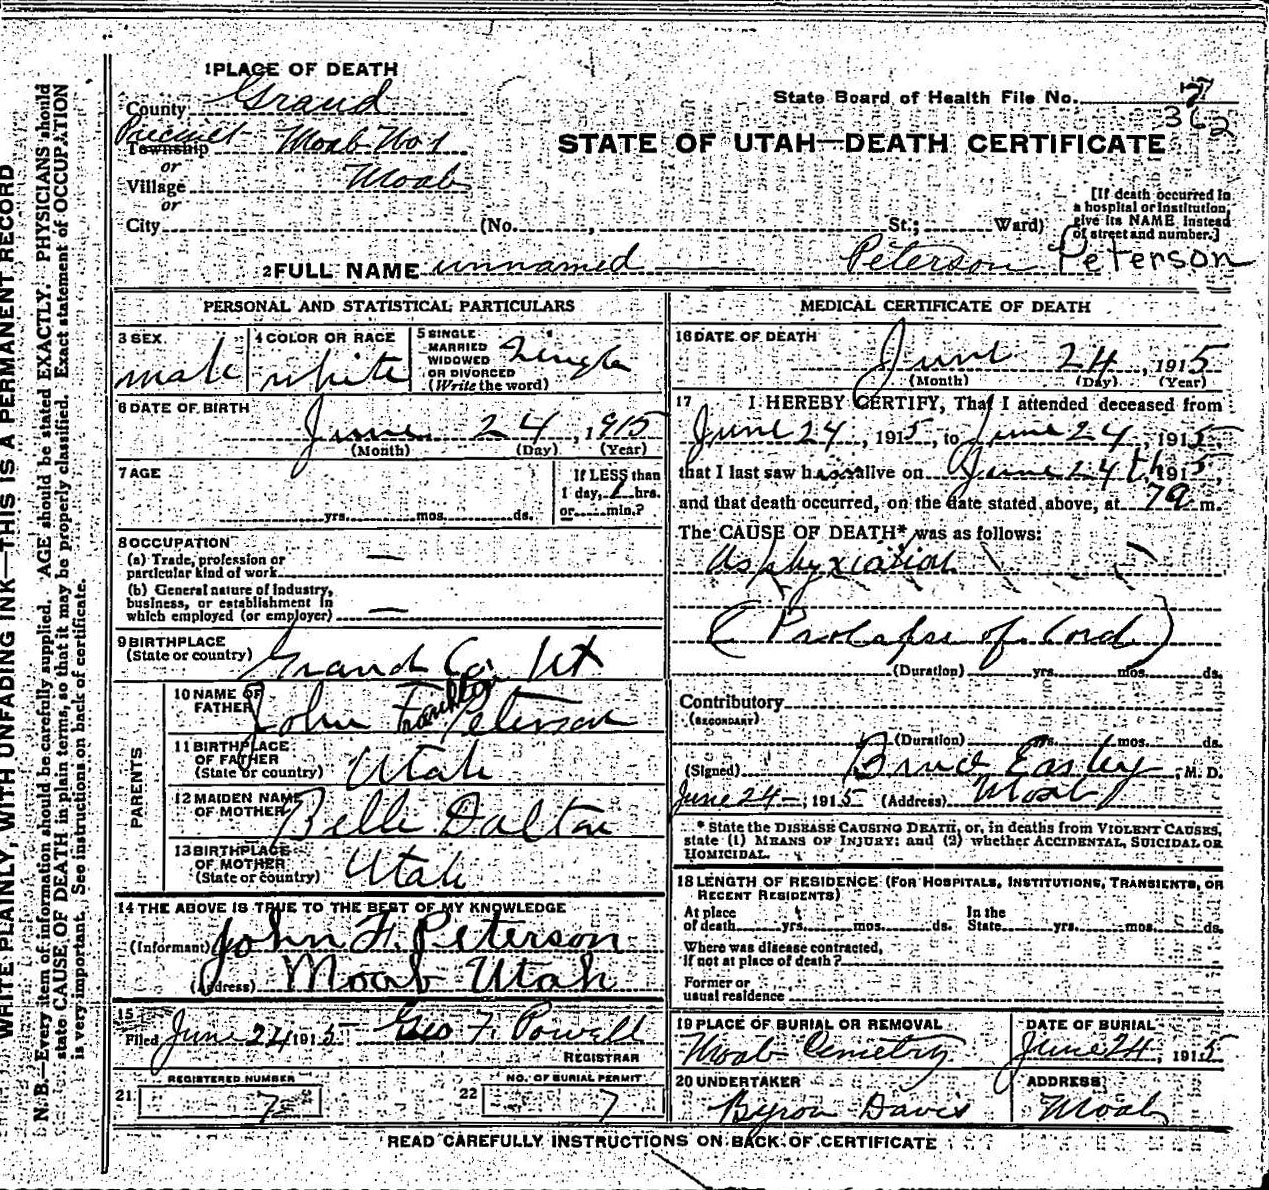 1 PLACE OF DEATH
County Grand
State Board of Health File No. 7
362
Precinct Township Moab No 1
STATE OF UTAH—DEATH CERTIFICATE
or
Village Moab
or
City (No. , St.; Ward)
[If death occurred in
a hospital or institution,
give its NAME instead
of street and number.]
2 FULL NAME unnamed Peterson Peterson
PERSONAL AND STATISTICAL PARTICULARS
3 SEX
male
4 COLOR OR RACE
white
5 SINGLE
MARRIED
WIDOWED
OR DIVORCED
(Write the word)
Single
6 DATE OF BIRTH
June 24, 1915
(Month) (Day) (Year)
7 AGE
yrs. mos. ds.
If LESS than
1 day, 1 hrs.
or min.?
8 OCCUPATION
(a) Trade, profession or
particular kind of work —
(b) General nature of industry,
business, or establishment in
which employed (or employer) —
9 BIRTHPLACE
(State or country) Grand Co, Ut
PARENTS
10 NAME OF
FATHER John Franklin Peterson
11 BIRTHPLACE
OF FATHER
(State or country) Utah
12 MAIDEN NAME
OF MOTHER Belle Dalton
13 BIRTHPLACE
OF MOTHER
(State or country) Utah
14 THE ABOVE IS TRUE TO THE BEST OF MY KNOWLEDGE
(Informant) John F. Peterson
(Address) Moab Utah
15
Filed June 24 1915 Geo F. Powell
REGISTRAR
REGISTERED NUMBER
21 7
NO. OF BURIAL PERMIT
22 7
MEDICAL CERTIFICATE OF DEATH
16 DATE OF DEATH
June 24, 1915
(Month) (Day) (Year)
17 I HEREBY CERTIFY, That I attended deceased from
June 24, 1915, to June 24, 1915
that I last saw him alive on June 24th 1915,
and that death occurred, on the date stated above, at 7 a m.
The CAUSE OF DEATH* was as follows:
Asphyxiation
(Prolapse of Cord)
(Duration) yrs. mos. ds.
Contributory
(SECONDARY)
(Duration) yrs. mos. ds.
(Signed) Bruce Easley, M. D.
June 24, 1915 (Address) Moab
* State the DISEASE CAUSING DEATH, or, in deaths from VIOLENT CAUSES,
state (1) MEANS OF INJURY; and (2) whether ACCIDENTAL, SUICIDAL OR
HOMICIDAL.
18 LENGTH OF RESIDENCE (FOR HOSPITALS, INSTITUTIONS, TRANSIENTS, OR
RECENT RESIDENTS)
At place
of death yrs. mos. ds.
In the
State yrs. mos. ds.
Where was disease contracted,
if not at place of death?
Former or
usual residence
19 PLACE OF BURIAL OR REMOVAL
Moab Cemetry
DATE OF BURIAL
June 24, 1915
20 UNDERTAKER
Byron Davis
ADDRESS
Moab
READ CAREFULLY INSTRUCTIONS ON BACK OF CERTIFICATE
WRITE PLAINLY, WITH UNFADING INK—THIS IS A PERMANENT RECORD
N. B.—Every item of information should be carefully supplied. AGE should be stated EXACTLY. PHYSICIANS should
state CAUSE OF DEATH in plain terms, so that it may be properly classified. Exact statement of OCCUPATION
is very important. See instructions on back of certificate.